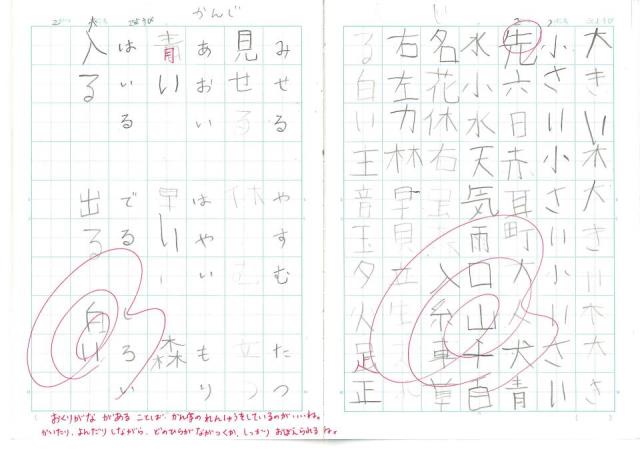 大きい木大きい木大き
小さい小さい小いさい
先六日赤耳町大人犬青
水小水天気雨口山千百
名花休右虫 入糸車草
右左力林早貝立生
る白い王音玉夕人足正
かんじ
みせる やすむ たつ
見せる 休む 立つ
あおい はやい もり
青い 早い 森
はいる でる しろい
入る 出る 白い
おくりがながあることばで、かん字のれんしゅうをしているのがいいね。
かいたり、よんだりしながら、どのひらがながつくか、しっかりおぼえられるね。